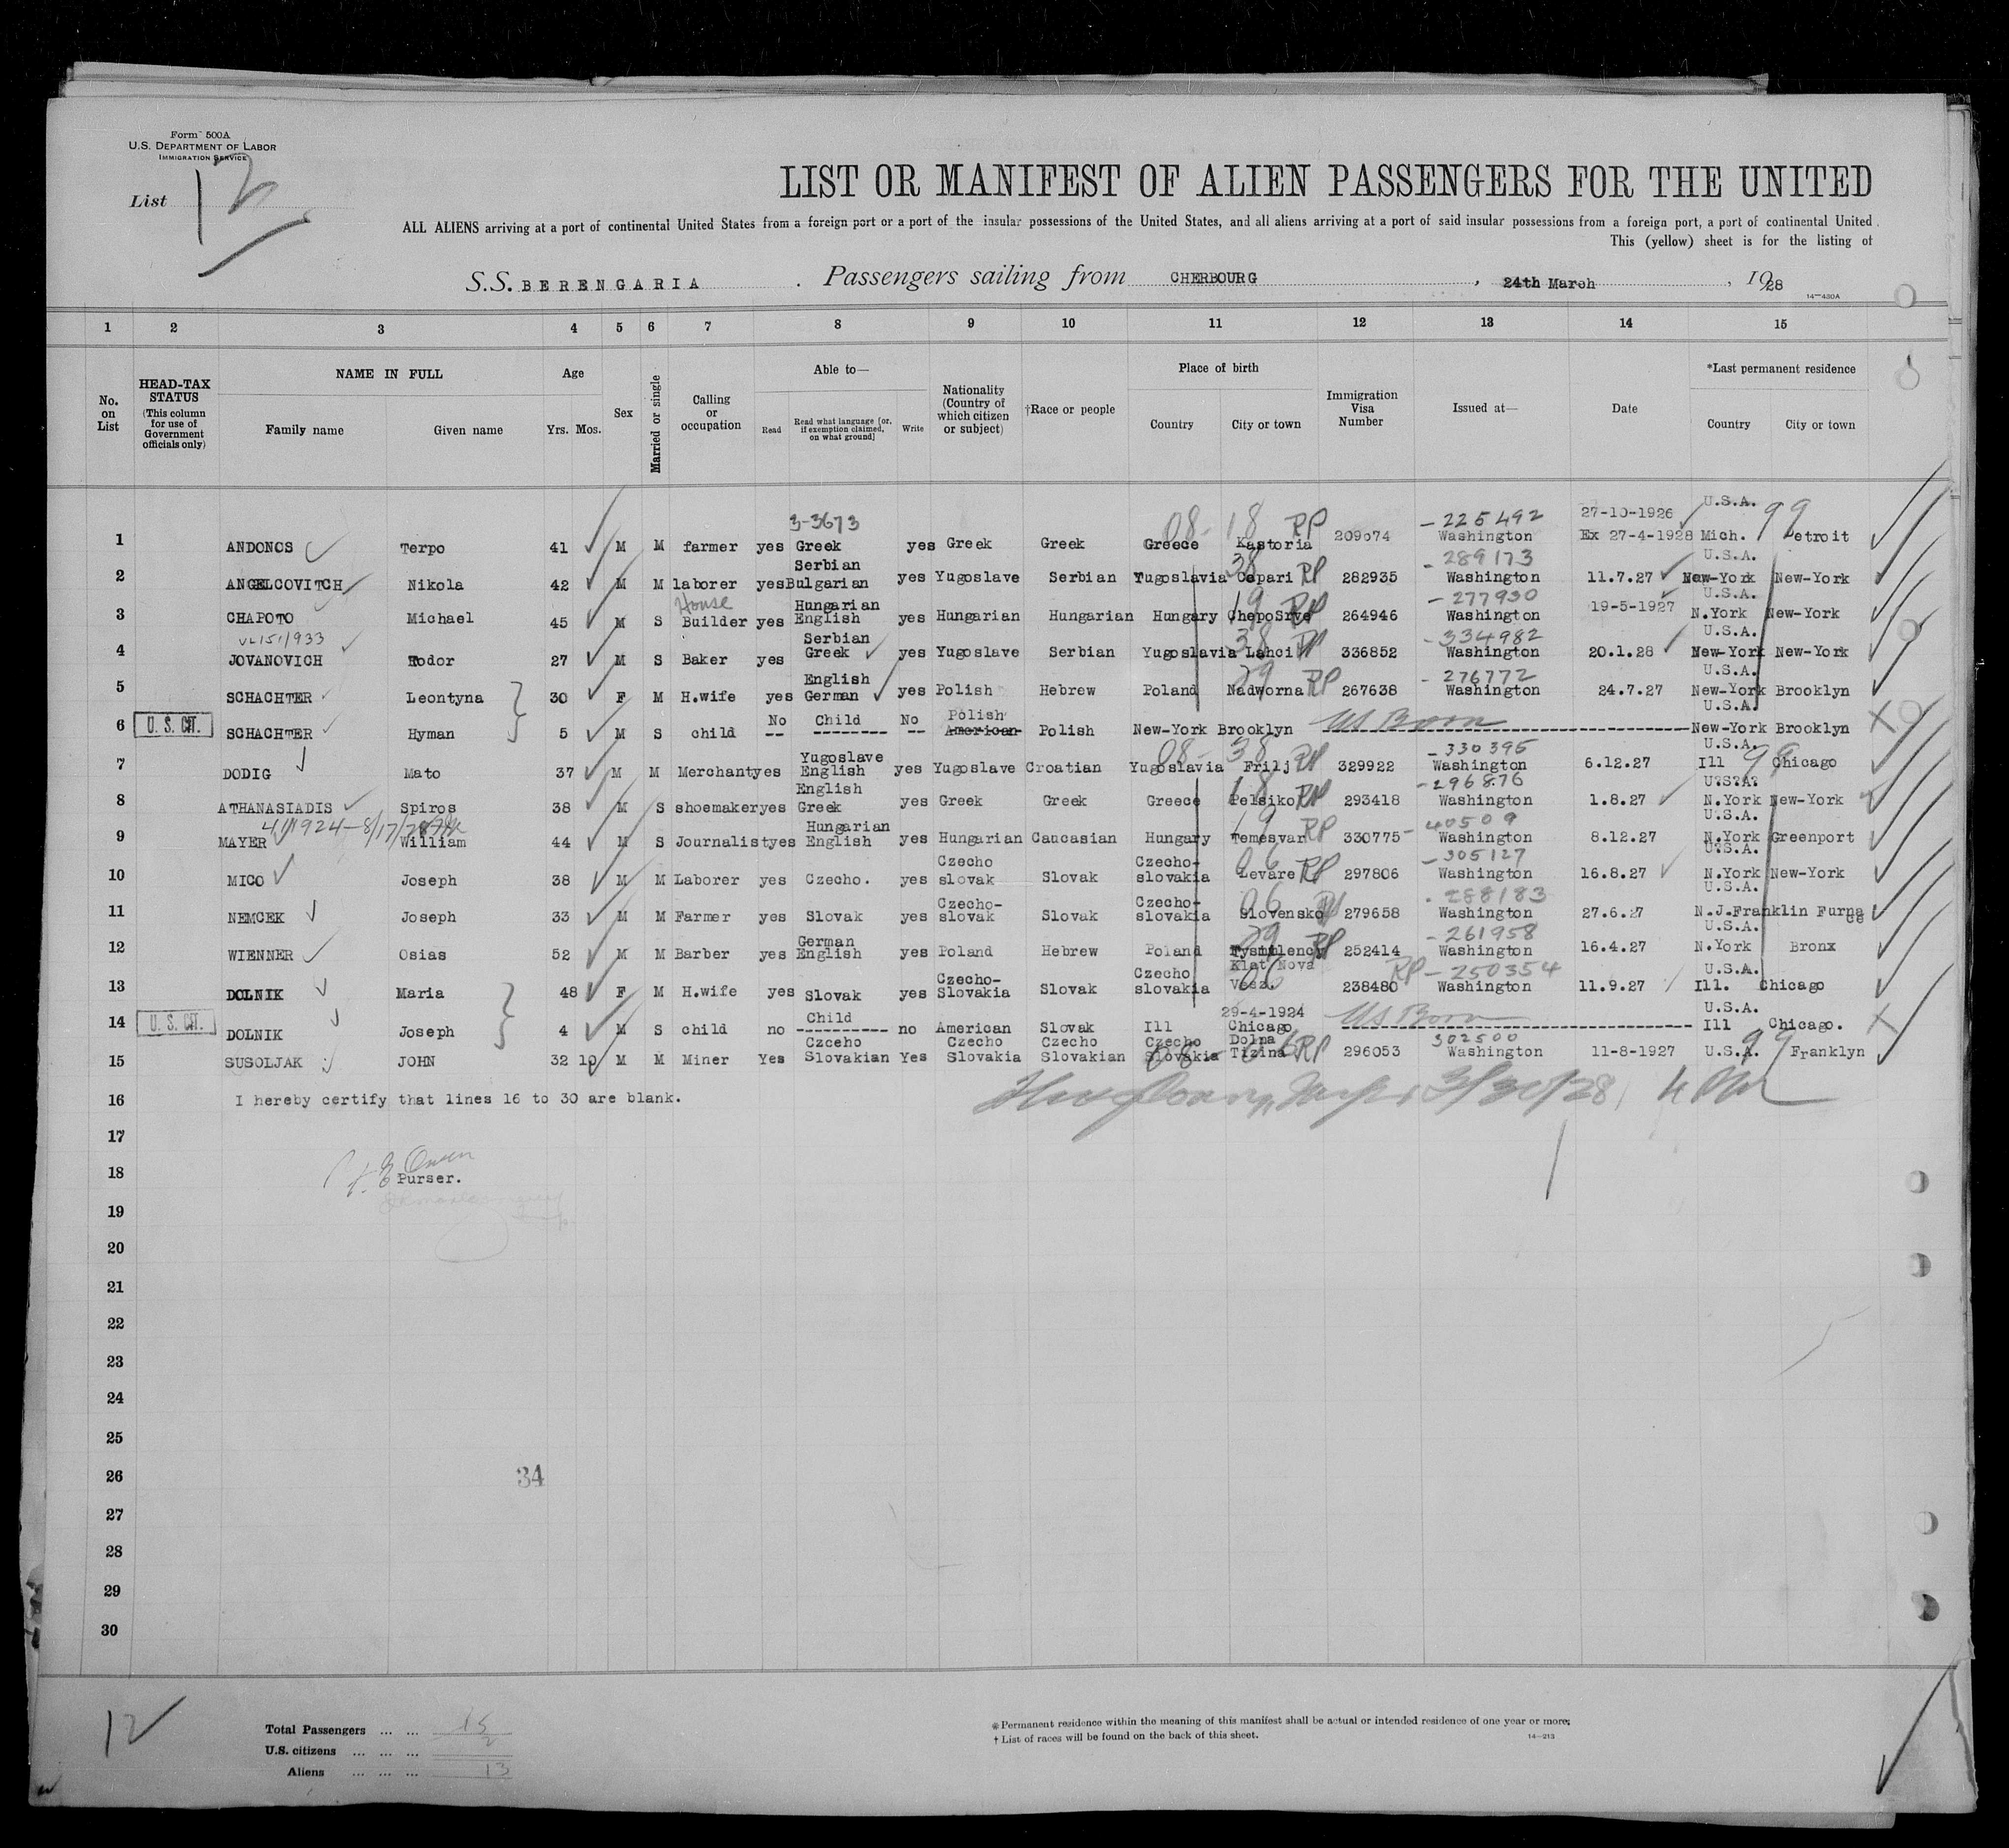 Form 500A
U.S. DEPARTMENT OF LABOR
IMMIGRATION SERVICE
List 12
LIST OR MANIFEST OF ALIEN PASSENGERS FOR THE UNITED
ALL ALIENS arriving at a port of continental United States from a foreign port or a port of the insular possessions of the United States, and all aliens arriving at a port of said insular possessions from a foreign port, a port of continental United
This (yellow) sheet is for the listing of
S.S. BERENGARIA . Passengers sailing from CHERBOURG , 24th March , 1928
14—430A
1 2 3 4 5 6 7 8 9 10 11 12 13 14 15
No. on List
HEAD-TAX STATUS (This column for use of Government officials only)
NAME IN FULL
Family name Given name
Age
Yrs. Mos.
Sex
Married or single
Calling or occupation
Able to—
Read Read what language [or, if exemption claimed, on what ground] Write
Nationality (Country of which citizen or subject)
†Race or people
Place of birth
Country City or town
Immigration Visa Number
Issued at—
Date
*Last permanent residence
Country City or town
3-3673 08- 18 RP - 225492 27-10-1926 U.S.A. 99
1 ANDONOS Terpo 41 M M farmer yes Greek yes Greek Greek Greece Kastoria 209074 Washington Ex 27-4-1928 Mich. Detroit
Serbian 38 - 289173 U.S.A.
2 ANGELCOVITCH Nikola 42 M M laborer yes Bulgarian yes Yugoslave Serbian Yugoslavia Capari RP 282935 Washington 11.7.27 New-York New-York
House Hungarian 19 RP - 277930 U.S.A.
3 CHAPOTO Michael 45 M S Builder yes English yes Hungarian Hungarian Hungary ChepoSrve 264946 Washington 19-5-1927 N.York New-York
Serbian 38 - 334982 U.S.A.
4 JOVANOVICH Todor 27 M S Baker yes Greek yes Yugoslave Serbian Yugoslavia Lahci 336852 Washington 20.1.28 New-York New-York
English 29 - 276772 U.S.A.
5 SCHACHTER Leontyna 30 F M H.wife yes German yes Polish Hebrew Poland Nadworna RP 267638 Washington 24.7.27 New-York Brooklyn
No Child No Polish U.S.A.
6 U.S. CIT. SCHACHTER Hyman 5 M S child -- -------- -- American Polish New-York Brooklyn US Born New-York Brooklyn
Yugoslave 08- 38 - 330395 U.S.A. 99
7 DODIG Mato 37 M M Merchant yes English yes Yugoslave Croatian Yugoslavia Frilj RP 329922 Washington 6.12.27 Ill Chicago
English 18 - 296876 U?S?A?
8 ATHANASIADIS Spiros 38 M S shoemaker yes Greek yes Greek Greek Greece Pelsiko RP 293418 Washington 1.8.27 N.York New-York
Hungarian 19 - 40509 U.S.A.
9 MAYER William 44 M S Journalist yes English yes Hungarian Caucasian Hungary Temesvar RP 330775 Washington 8.12.27 N.York Greenport
Czecho Czecho- 06 - 305127 U.S.A.
10 MICO Joseph 38 M M Laborer yes Czecho. yes slovak Slovak slovakia Levare RP 297806 Washington 16.8.27 N.York New-York
Czecho- Czecho- 06 - 288183 U.S.A.
11 NEMCEK Joseph 33 M M Farmer yes Slovak yes slovak Slovak slovakia Slovensko 279658 Washington 27.6.27 N.J. Franklin Furnace
German 29 - 261958 U.S.A.
12 WIENNER Osias 52 M M Barber yes English yes Poland Hebrew Poland RP 252414 Washington 16.4.27 N.York Bronx
Czecho- Czecho Klat Nova 06 RP - 250354 U.S.A.
13 DOLNIK Maria 48 F M H.wife yes Slovak yes Slovakia Slovak slovakia Vesz. 238480 Washington 11.9.27 Ill. Chicago
Child 29-4-1924 U.S.A.
14 U.S. CIT. DOLNIK Joseph 4 M S child no ---------- no American Slovak Ill Chicago US Born Ill Chicago.
Czceho Czecho Czecho Czecho Dolna 302500 99
15 SUSOLJAK JOHN 32 10 M M Miner Yes Slovakian Yes Slovakia Slovakian Slovakia Tizina RP 296053 Washington 11-8-1927 U.S.A. Franklyn
16 I hereby certify that lines 16 to 30 are blank. 3/30/28
17
18 Purser.
19
20
21
22
23
24
25
26 34
27
28
29
30
12
Total Passengers ... ... 15
U.S. citizens ... ... ... 2
Aliens ... ... ... 13
*Permanent residence within the meaning of this manifest shall be actual or intended residence of one year or more.
† List of races will be found on the back of this sheet. 14—213